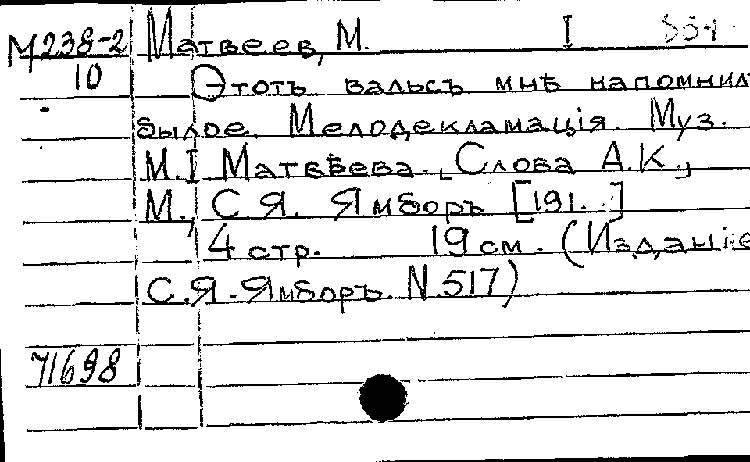 М238-2 Матвеев, М. I
10 Этотъ вальсъ мнѣ напомнил
былое. Мелодекламація. Муз.
М.I Матвѣева. Слова А.К.,
М., С.Я. Ямборъ [191. .]
4 стр. 19 см. (Изданіе
С.Я. Ямборъ. N 517)
71698